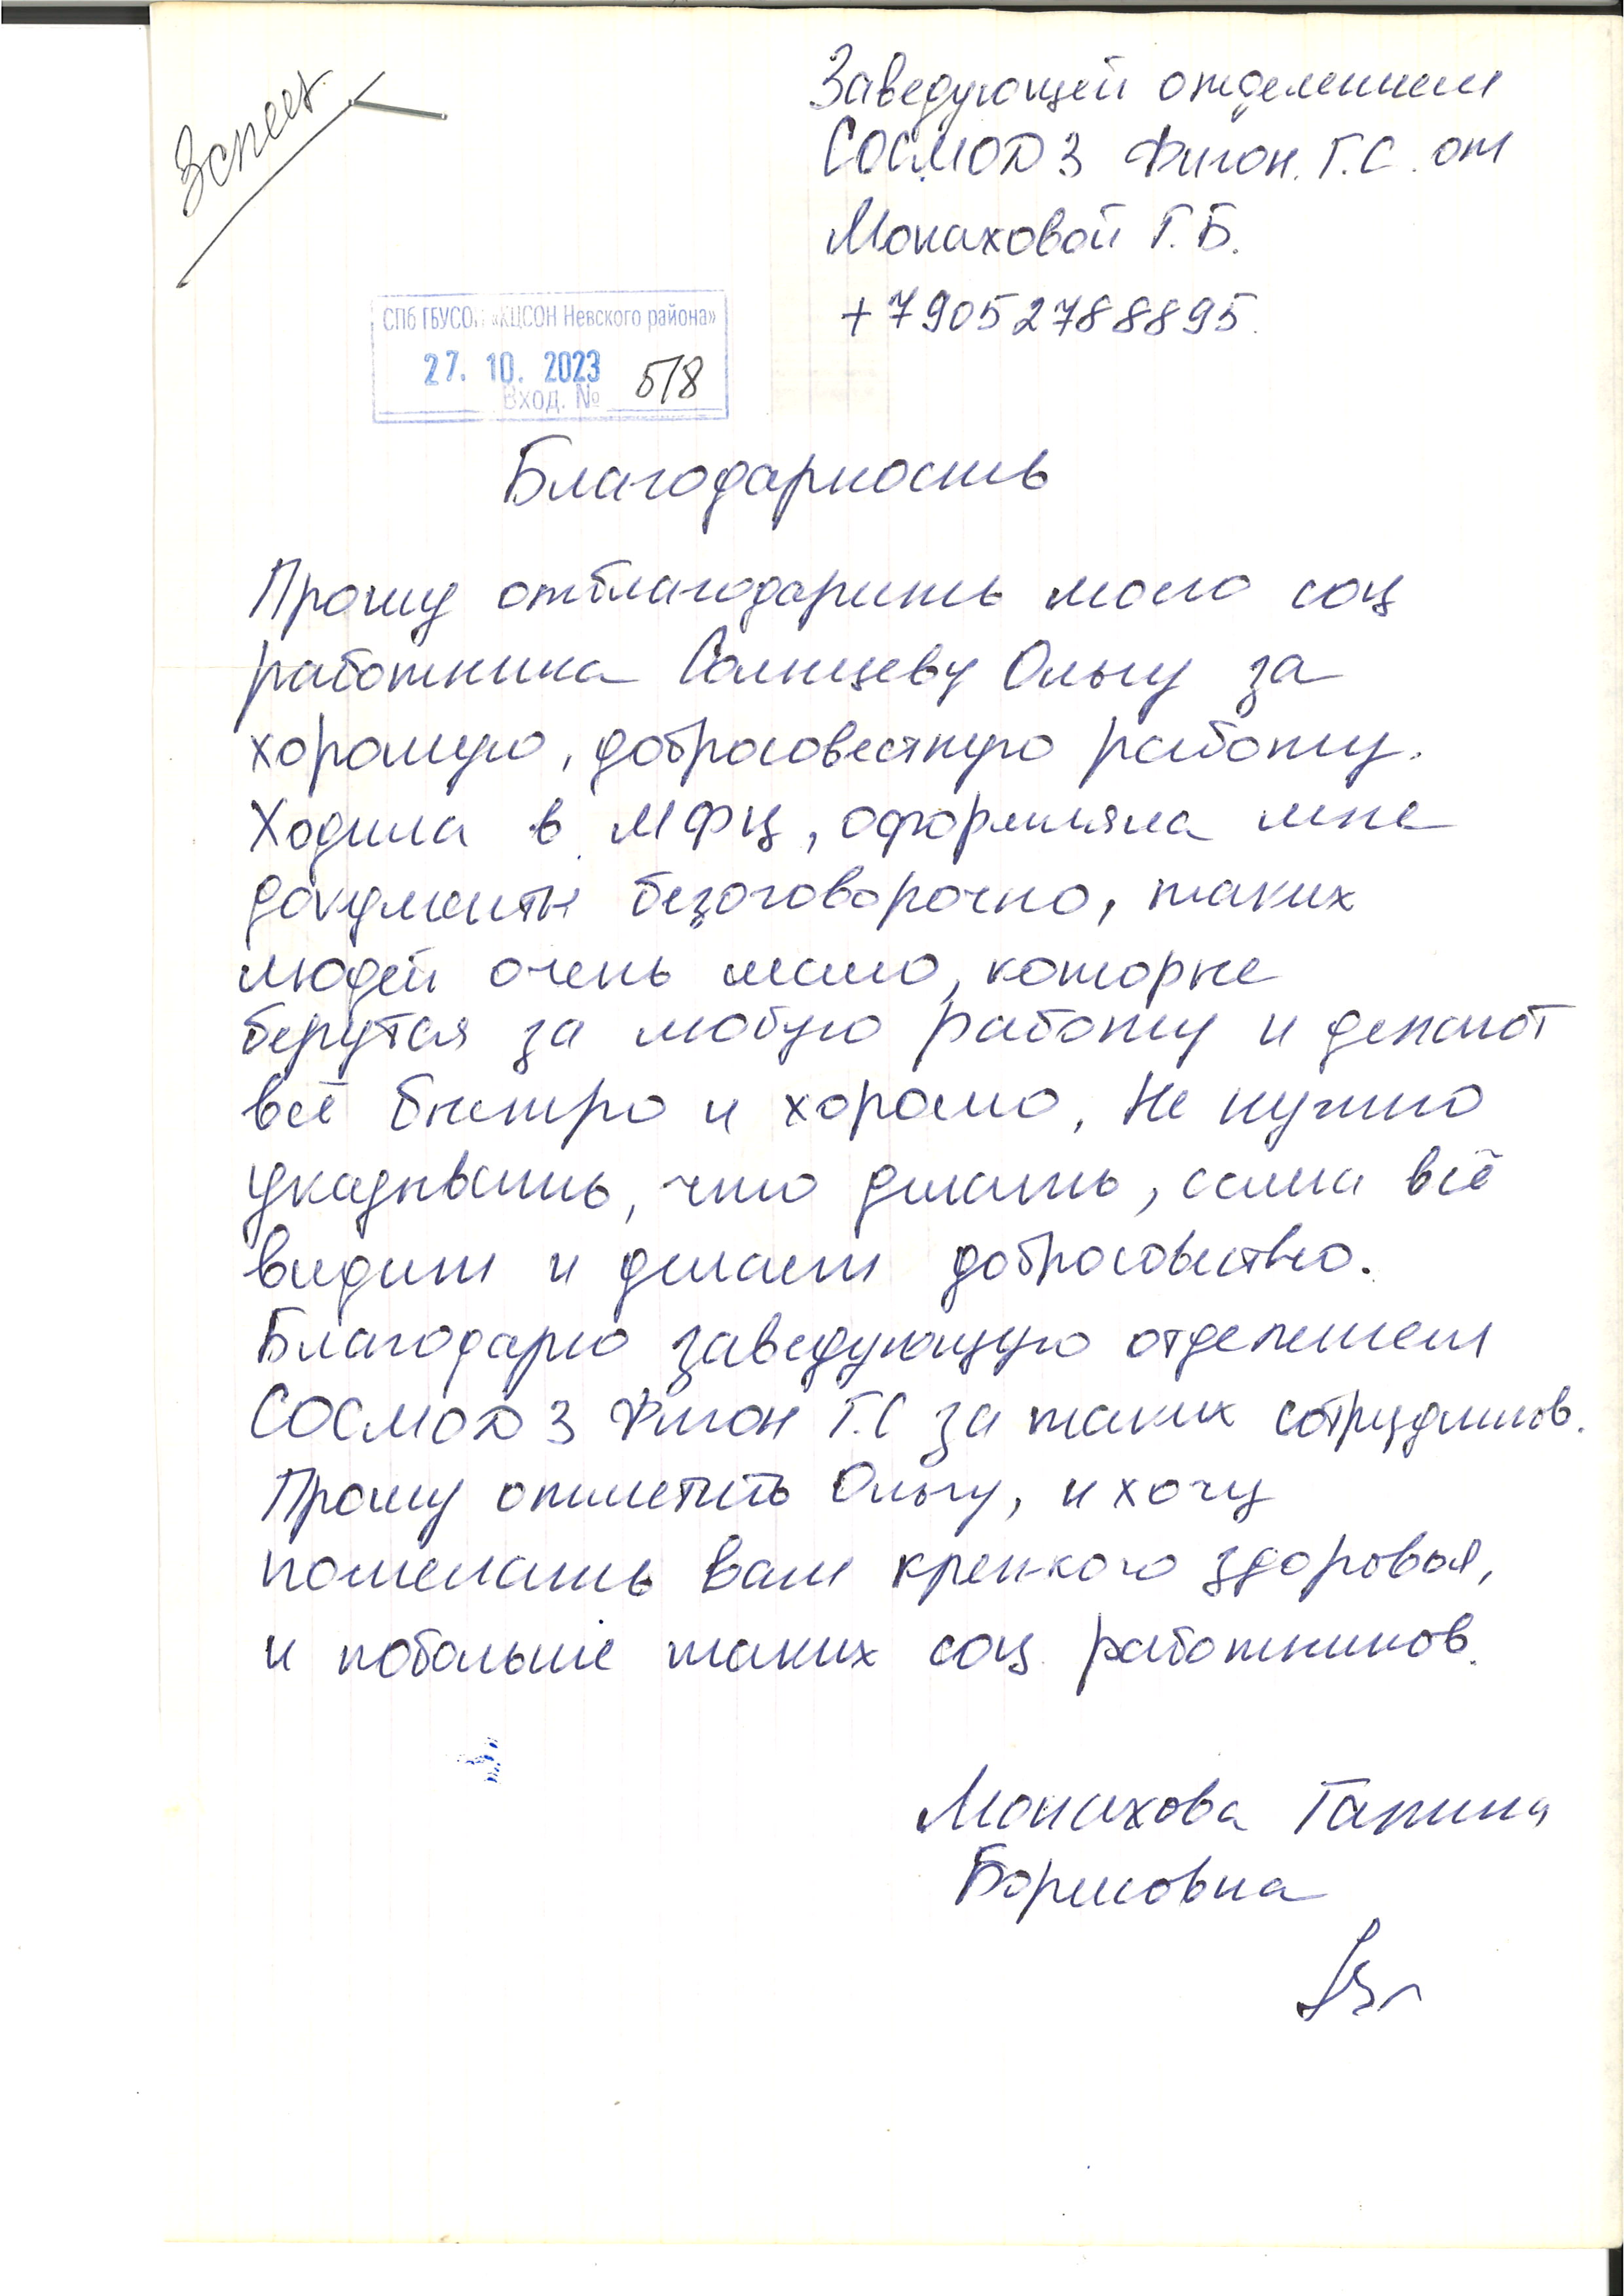 Заведующей отделением
СОСМОД 3 Фигон. Г.С. от
Монаховой Г.Б.
+79052788895.
СПб ГБУСОН «КЦСОН Невского района»
27. 10. 2023
Вход. № 518
Благодарность
Прошу отблагодарить моего соц
работника Солнцеву Ольгу за
хорошую, добросовестную работу.
Ходила в МФЦ, оформляла мне
документы безоговорочно, таких
людей очень мало, которые
берутся за любую работу и делают
всё быстро и хорошо, Не нужно
указывать, что делать, сама всё
видит и делает добросовестно.
Благодарю заведующую отделением
СОСМОД 3 Фигон Г.С за таких сотрудников.
Прошу отметить Ольгу, и хочу
пожелать Вам крепкого здоровья,
и побольше таких соц. работников.
Монахова Галина
Борисовна